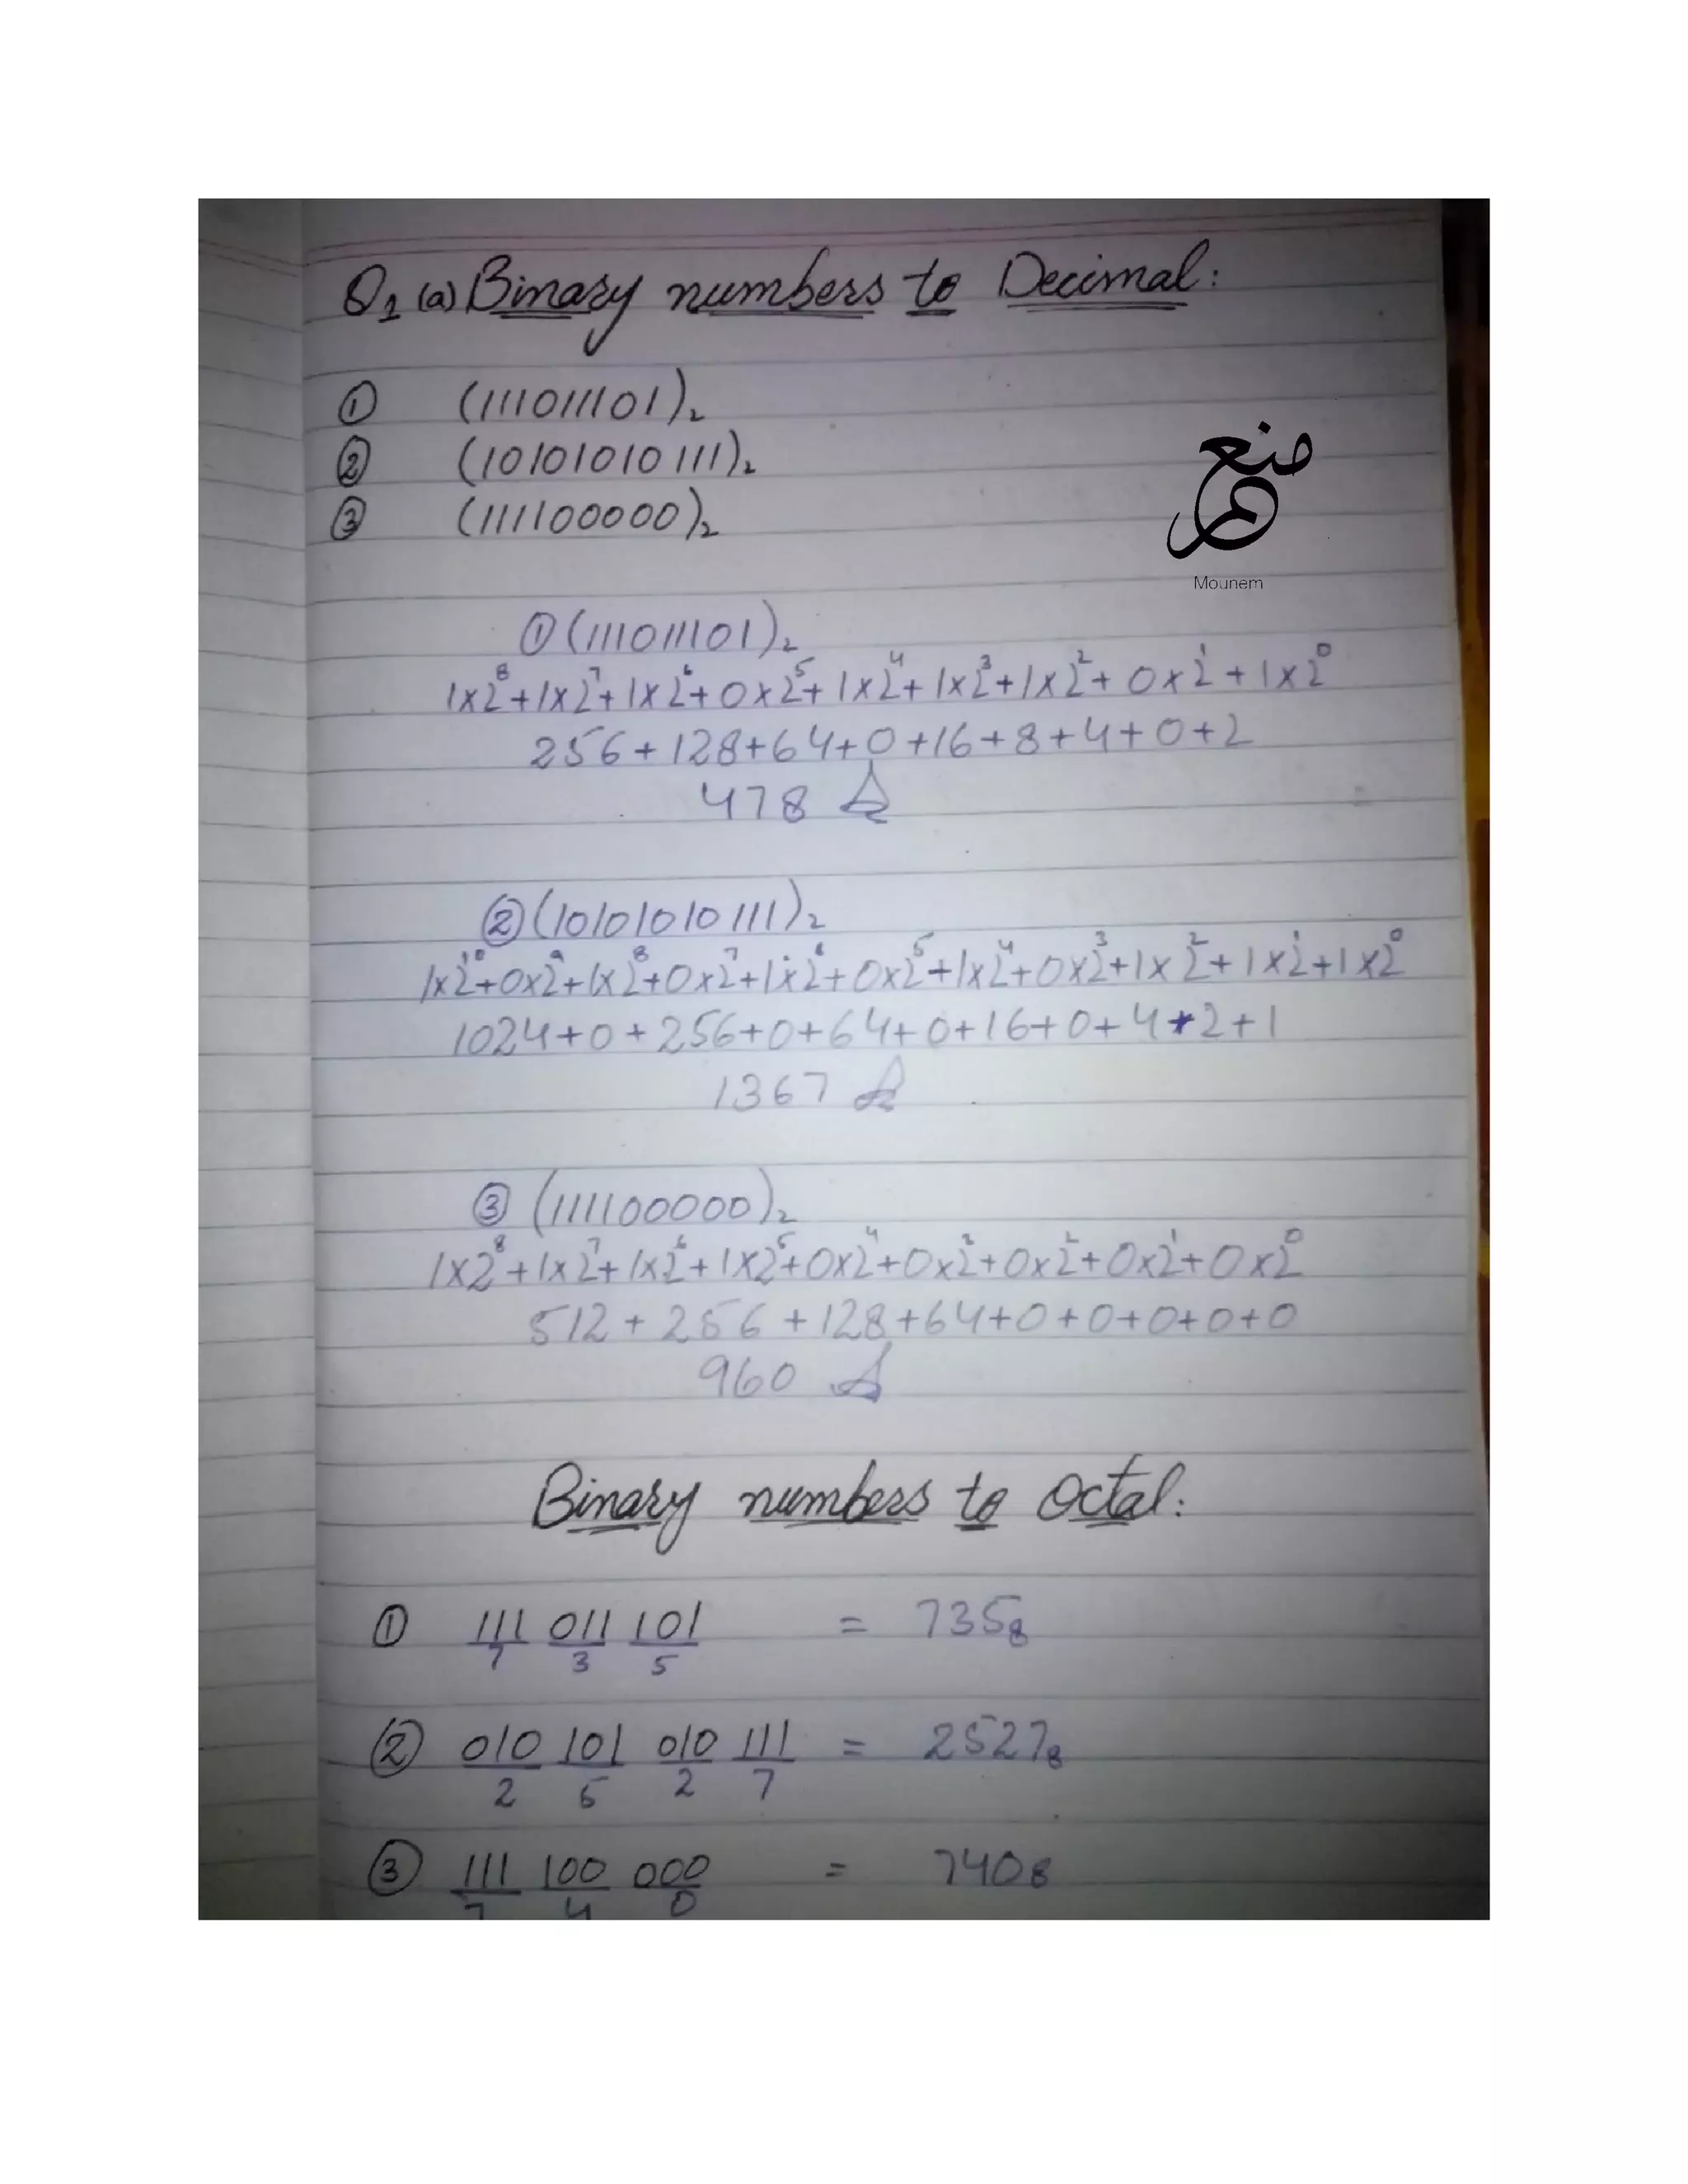 Q1 (a) Binary numbers to Decimal:
① (111011101)₂
② (10101010111)₂
③ (111100000)₂
منعم
Mounem
① (111011101)₂
1x2⁸+1x2⁷+1x2⁶+0x2⁵+1x2⁴+1x2³+1x2²+0x2¹+1x2⁰
256+128+64+0+16+8+4+0+2
478
② (10101010111)₂
1x2¹⁰+0x2⁹+1x2⁸+0x2⁷+1x2⁶+0x2⁵+1x2⁴+0x2³+1x2²+1x2¹+1x2⁰
1024+0+256+0+64+0+16+0+4+2+1
1367
③ (111100000)₂
1x2⁸+1x2⁷+1x2⁶+1x2⁵+0x2⁴+0x2³+0x2²+0x2¹+0x2⁰
512+256+128+64+0+0+0+0+0
960
Binary numbers to Octal:
① 111 011 101 = 735₈
7 3 5
② 010 101 010 111 = 2527₈
2 5 2 7
③ 111 100 000 = 740₈
7 4 0